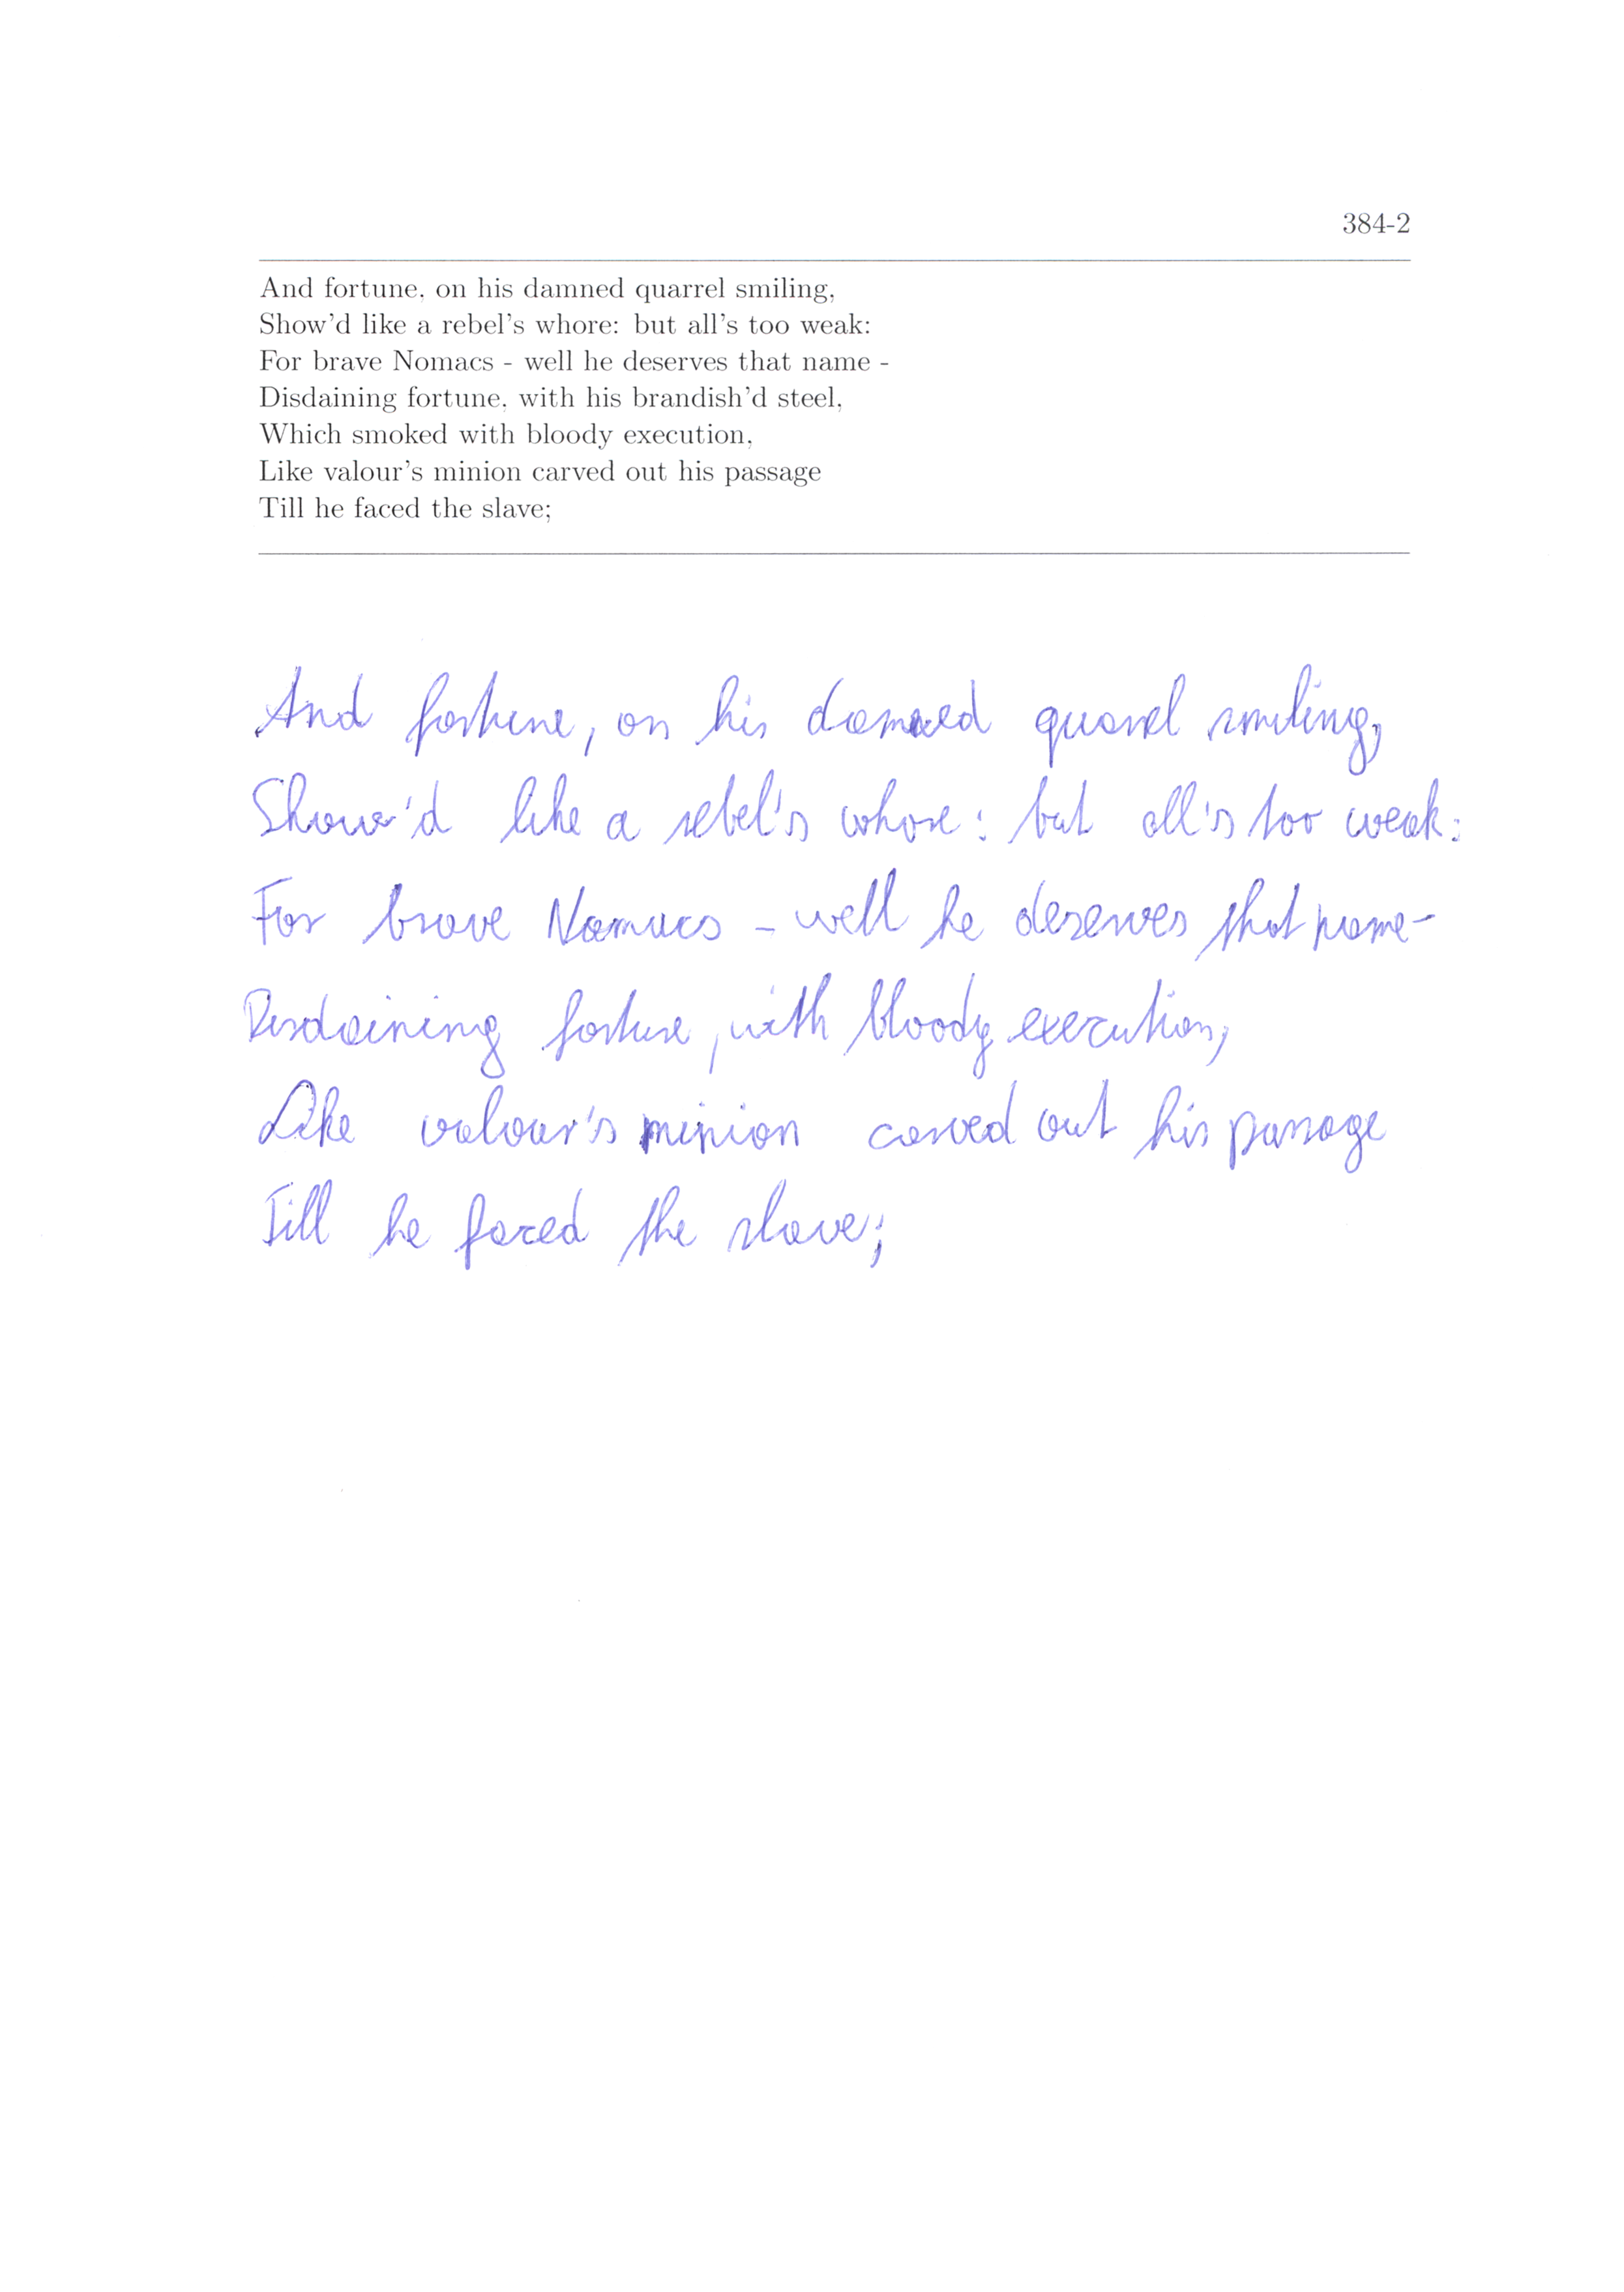 384-2
And fortune, on his damned quarrel smiling,
Show'd like a rebel's whore: but all's too weak:
For brave Nomacs - well he deserves that name -
Disdaining fortune, with his brandish'd steel,
Which smoked with bloody execution,
Like valour's minion carved out his passage
Till he faced the slave;
And fortune, on his damned quarrel smiling,
Show'd like a rebel's whore: but all's too weak:
For brave Nomacs - well he deserves that name -
Disdaining fortune, with bloody execution,
Like valour's minion carved out his passage
Till he faced the slave;